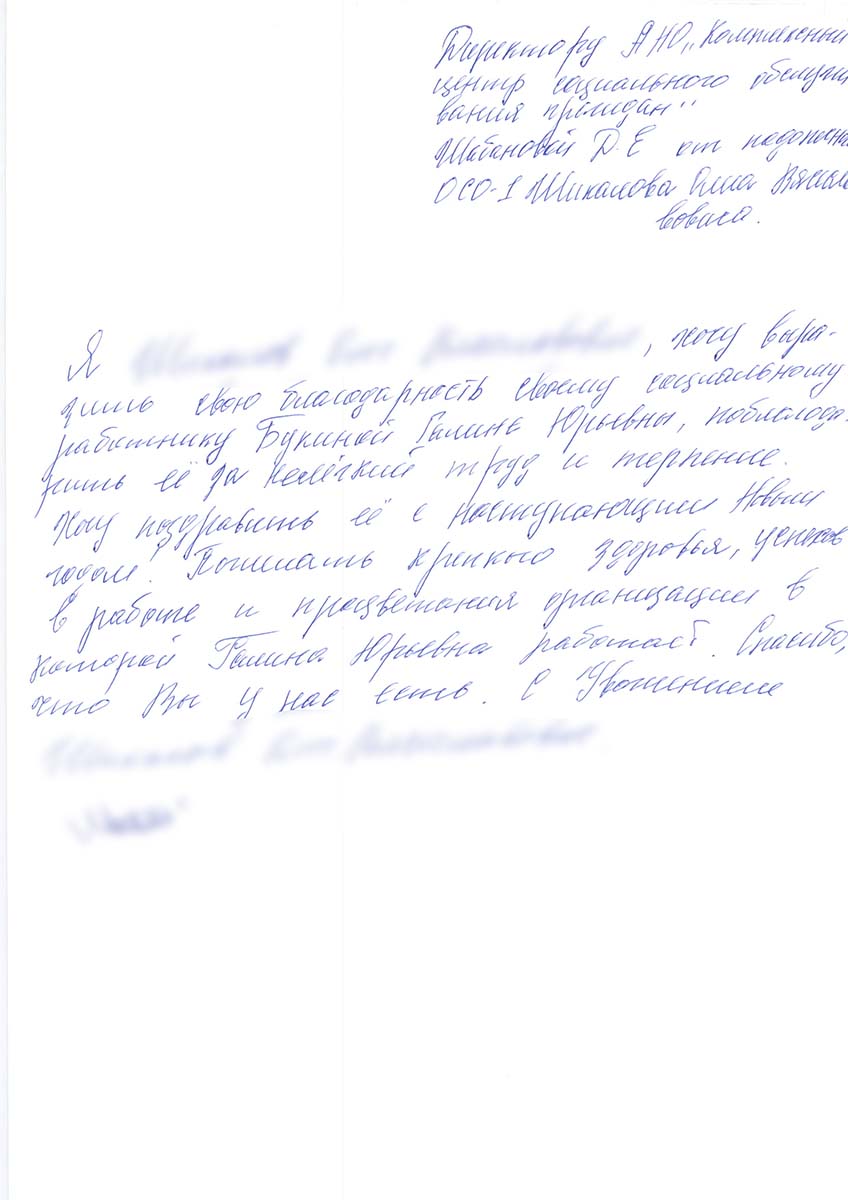 Директору АНО „Комплексный
центр социального обслужи
вания граждан"
Шабановой Д.Е от
ОСО-1 Шикалова Олега Вячесла
вовича.
Я , хочу выра-
зить свою благодарность своему социальному
работнику Букиной Галине Юрьевны, поблагода-
рить её за нелёгкий труд и терпение.
Хочу поздравить её с наступающим Новым
годом! Пожелать крепкого здоровья, успехов
в работе и процветания организации в
которой Галина Юрьевна работает. Спасибо,
что Вы у нас есть. С Уважением